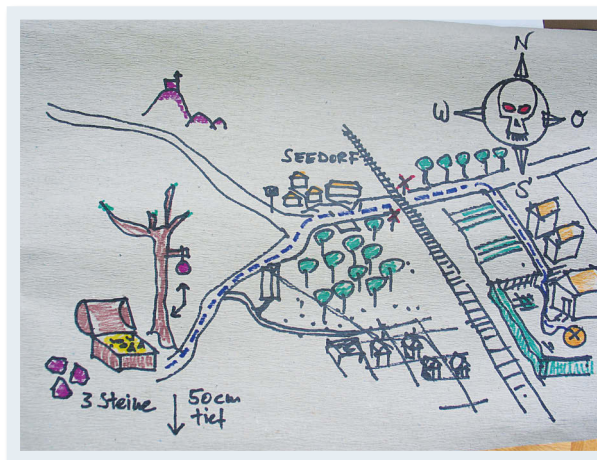 N
W
O
S
SEEDORF
X
3 Steine
50 cm
tief